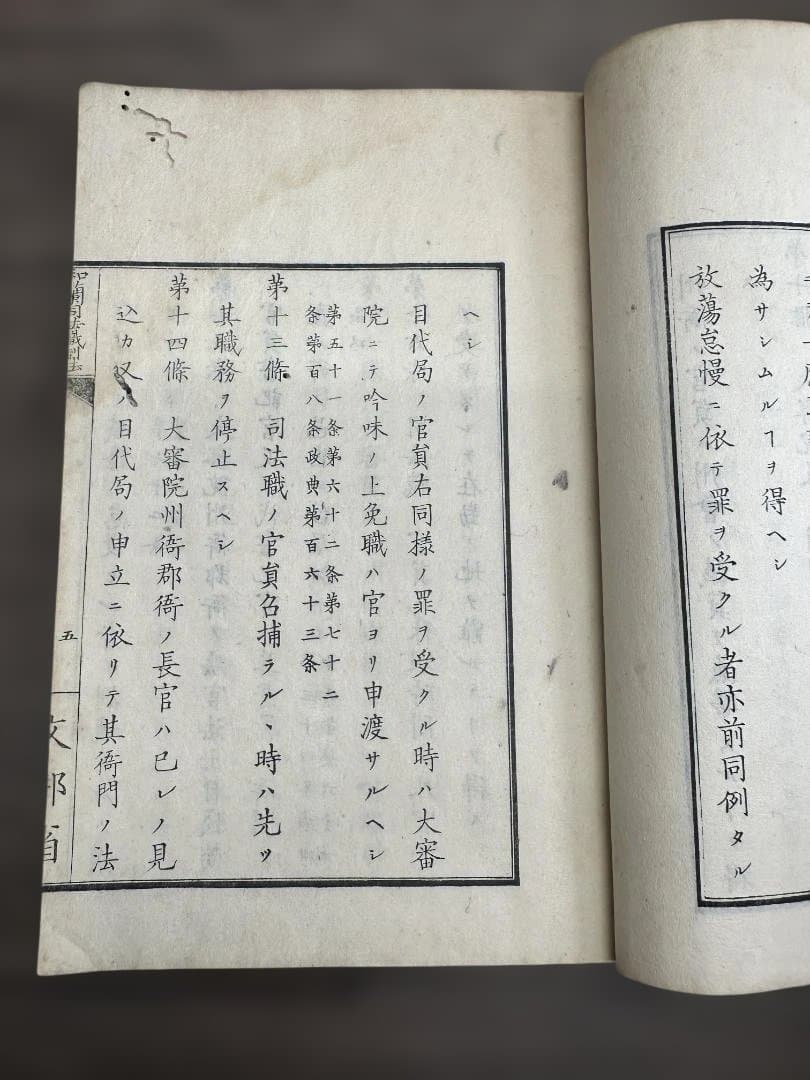 為サシムルヿヲ得ヘシ
放蕩怠慢ニ依テ罪ヲ受クル者亦前同例タル
ヘシ
目代局ノ官員右同樣ノ罪ヲ受クル時ハ大審
院ニテ吟味ノ上免職ハ官ヨリ申渡サルヘシ
第五十一条第六十二条第七十二
条第百八条政典第百六十三条
第十三條 司法職ノ官員召捕ラルヽ時ハ先ツ
其職務ヲ停止スヘシ
第十四條 大審院州衙郡衙ノ長官ハ已レノ見
込カ又ハ目代局ノ申立ニ依リテ其衙門ノ法
和蘭司法職制法
五
文部省